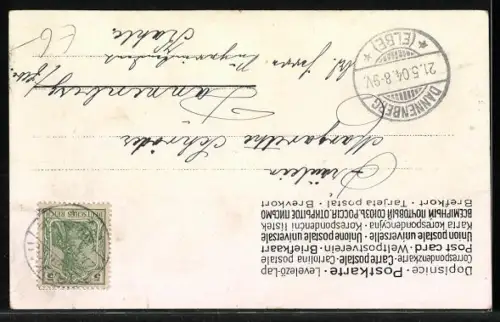 Dopisnice · Postkarte · Levelező-Lap
Correspondenzkarte · Carte postale · Cartolina postale
Post card · Weltpostverein · Briefkaart
Union postale universelle · Unione postale universale
Karta korespondencyjna · Korespondenční lístek
ВСЕМІРНЫЙ ПОЧТОВЫЙ СОЮЗЪ. РОССІЯ. ОТКРЫТОЕ ПИСЬМО
Brefkort · Tarjeta postal · Brevkort
Fräulein
Margarethe Schröder
Dannenberg
Kahle
DANNENBERG
21.5.04.8-9V.
* (ELBE) *
DEUTSCHES REICH
5 5